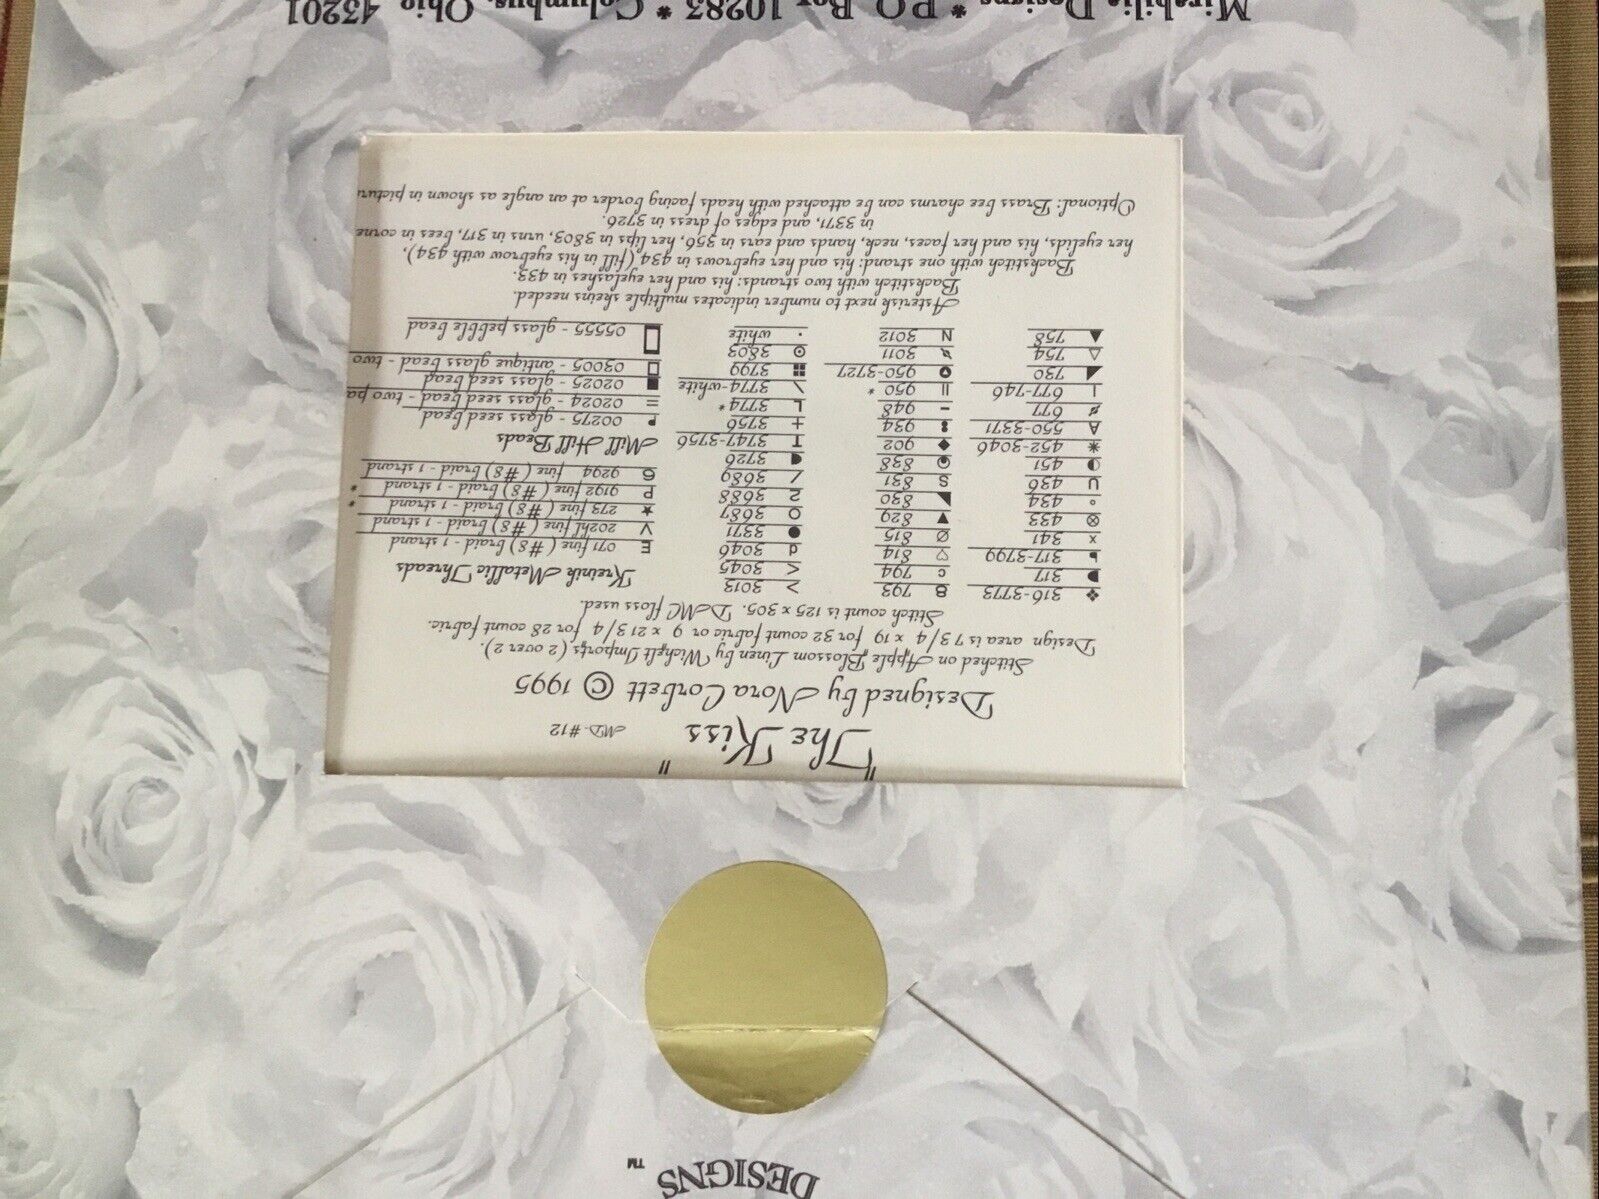 DESIGNS ™
"The Kiss"
MD-#12
Designed by Nora Corbett © 1995
Stitched on Apple Blossom Linen by Wichelt Imports (2 over 2).
Design area is 7 3/4 x 19 for 32 count fabric or 9 x 21 3/4 for 28 count fabric.
Stitch count is 125 x 305. DMC floss used.
❖ 316-3773
◗ 317
317-3799
x 341
⊗ 433
° 434
U 436
◐ 451
✳ 452-3046
A 550-3371
677
| 677-746
◢ 730
△ 754
▲ 758
8 793
c 794
♡ 814
Ø 815
▼ 829
◣ 830
S 831
838
◆ 902
934
- 948
|| 950 *
950-3727
3011
N 3012
> 3013
< 3045
d 3046
● 3371
O 3687
2 3688
/ 3689
3726
T 3747-3756
+ 3756
L 3774 *
\ 3774-white
3799
⊙ 3803
· white
Kreinik Metallic Threads
E 071 fine (#8) braid - 1 strand
V 202hl fine (#8) braid - 1 strand
★ 273 fine (#8) braid - 1 strand *
P 9192 fine (#8) braid - 1 strand *
6 9294 fine (#8) braid - 1 strand
Mill Hill Beads
00275 - glass seed bead
= 02024 - glass seed bead - two pa
■ 02025 - glass seed bead
□ 03005 - antique glass bead - two
▯ 05555 - glass pebble bead
Asterisk next to number indicates multiple skeins needed.
Backstitch with two strands: his and her eyelashes in 433.
Backstitch with one strand: his and her eyebrows in 434 (fill in his eyebrow with 434),
her eyelids, his and her faces, neck, hands and ears in 356, her lips in 3803, urns in 317, bees in corne
in 3371, and edges of dress in 3726.
Optional: Brass bee charms can be attached with heads facing border at an angle as shown in pictur
Mirabilia Designs * P.O. Box 10283 * Columbus, Ohio 43201